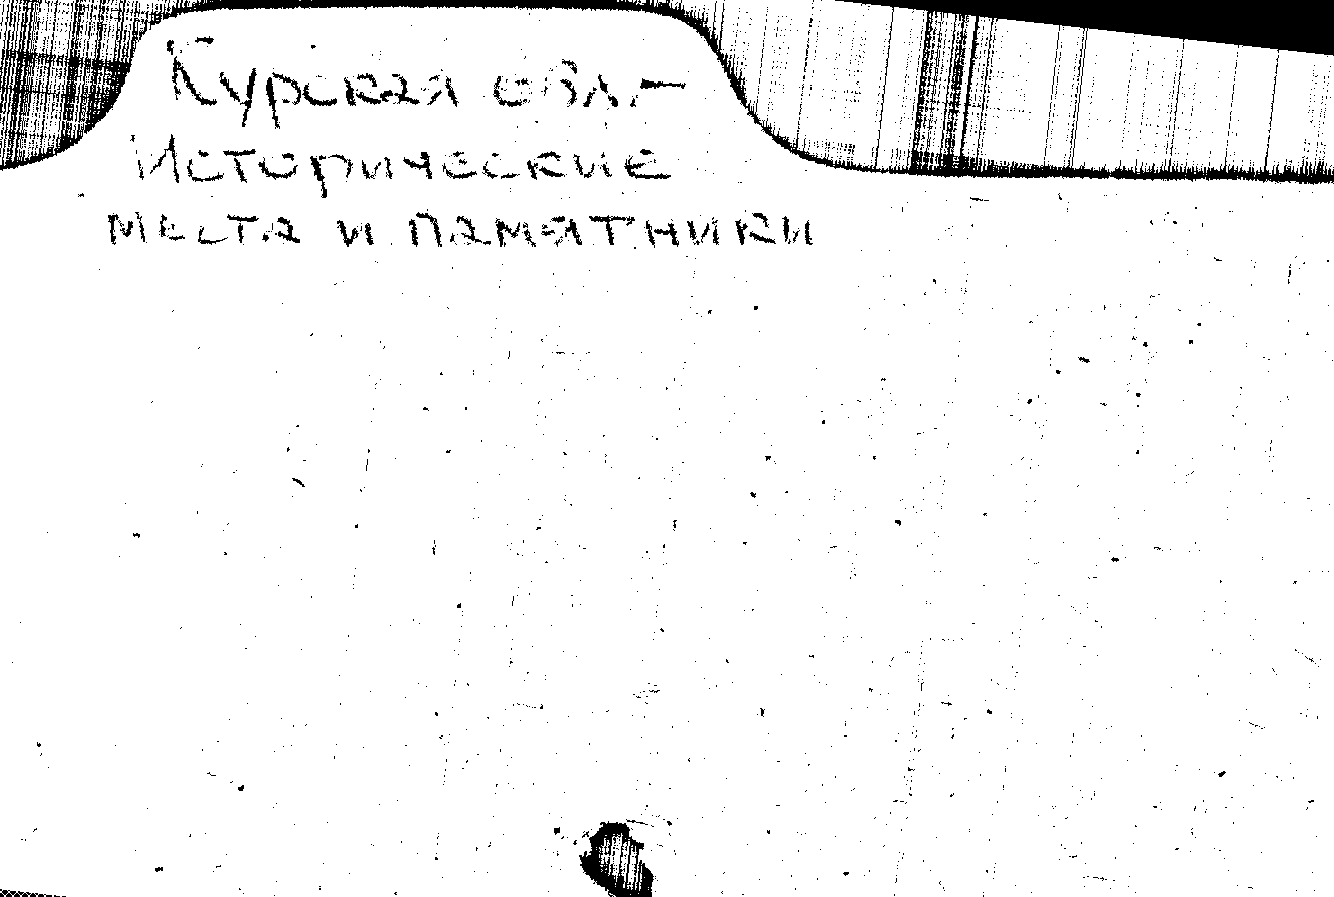 Курская обл.-
Исторические
места и памятники